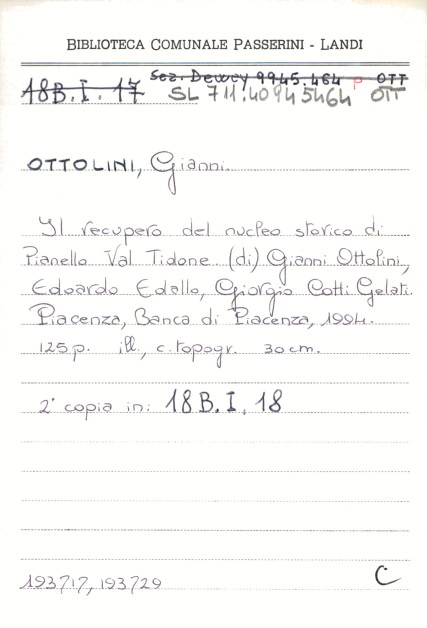 BIBLIOTECA COMUNALE PASSERINI - LANDI
Sez. Dewey 9945.464 P OTT
18B.I.17 SL 711.40945464 OTT
OTTOLINI, Gianni
Il recupero del nucleo storico di
Pianello Val Tidone (di) Gianni Ottolini,
Edoardo Edallo, Giorgio Cotti Gelati.
Piacenza, Banca di Piacenza, 1994.
125 p. ill., c. topogr. 30 cm.
2ª copia in: 18B.I.18
193717, 193729
C